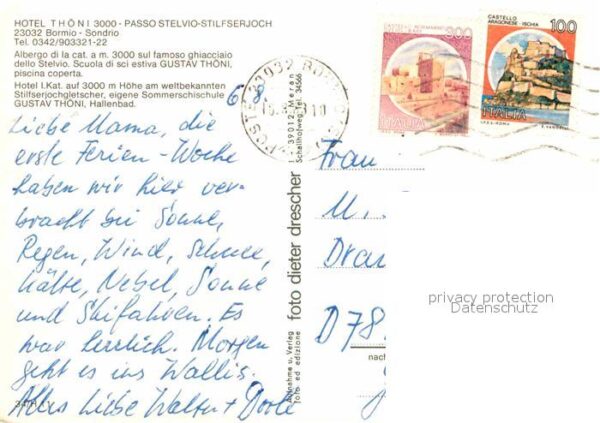 HOTEL THÖNI 3000 - PASSO STELVIO-STILFSERJOCH
23032 Bormio - Sondrio
Tel. 0342/903321-22
Albergo di la cat. a m. 3000 sul famoso ghiacciaio
dello Stelvio. Scuola di sci estiva GUSTAV THÖNI,
piscina coperta.
Hotel I.Kat. auf 3000 m Höhe am weltbekannten
Stilfserjochgletscher, eigene Sommerschischule
GUSTAV THÖNI, Hallenbad.
Liebe Mama, die
erste Ferien-Woche
haben wir hier ver-
bracht bei Sonne,
Regen, Wind, Schnee,
Kälte, Nebel, Sonne
und Skifahren. Es
war herrlich. Morgen
geht es ins Wallis.
Alles Liebe Walter +
foto dieter drescher
I 39012 Meran
Schallhofweg Tel. 34566
Aufnahme u. Verlag
foto ed edizione
23032 BORMIO
300
ITALIA
CASTELLO
ARAGONESE - ISCHIA
100
ITALIA
Frau
M.
D 78
nach
privacy protection
Datenschutz